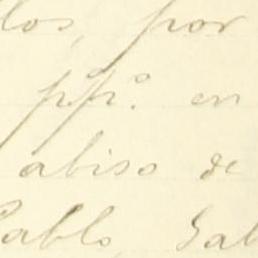 los, por
ppº. en
abiso de
Pablo, Gab